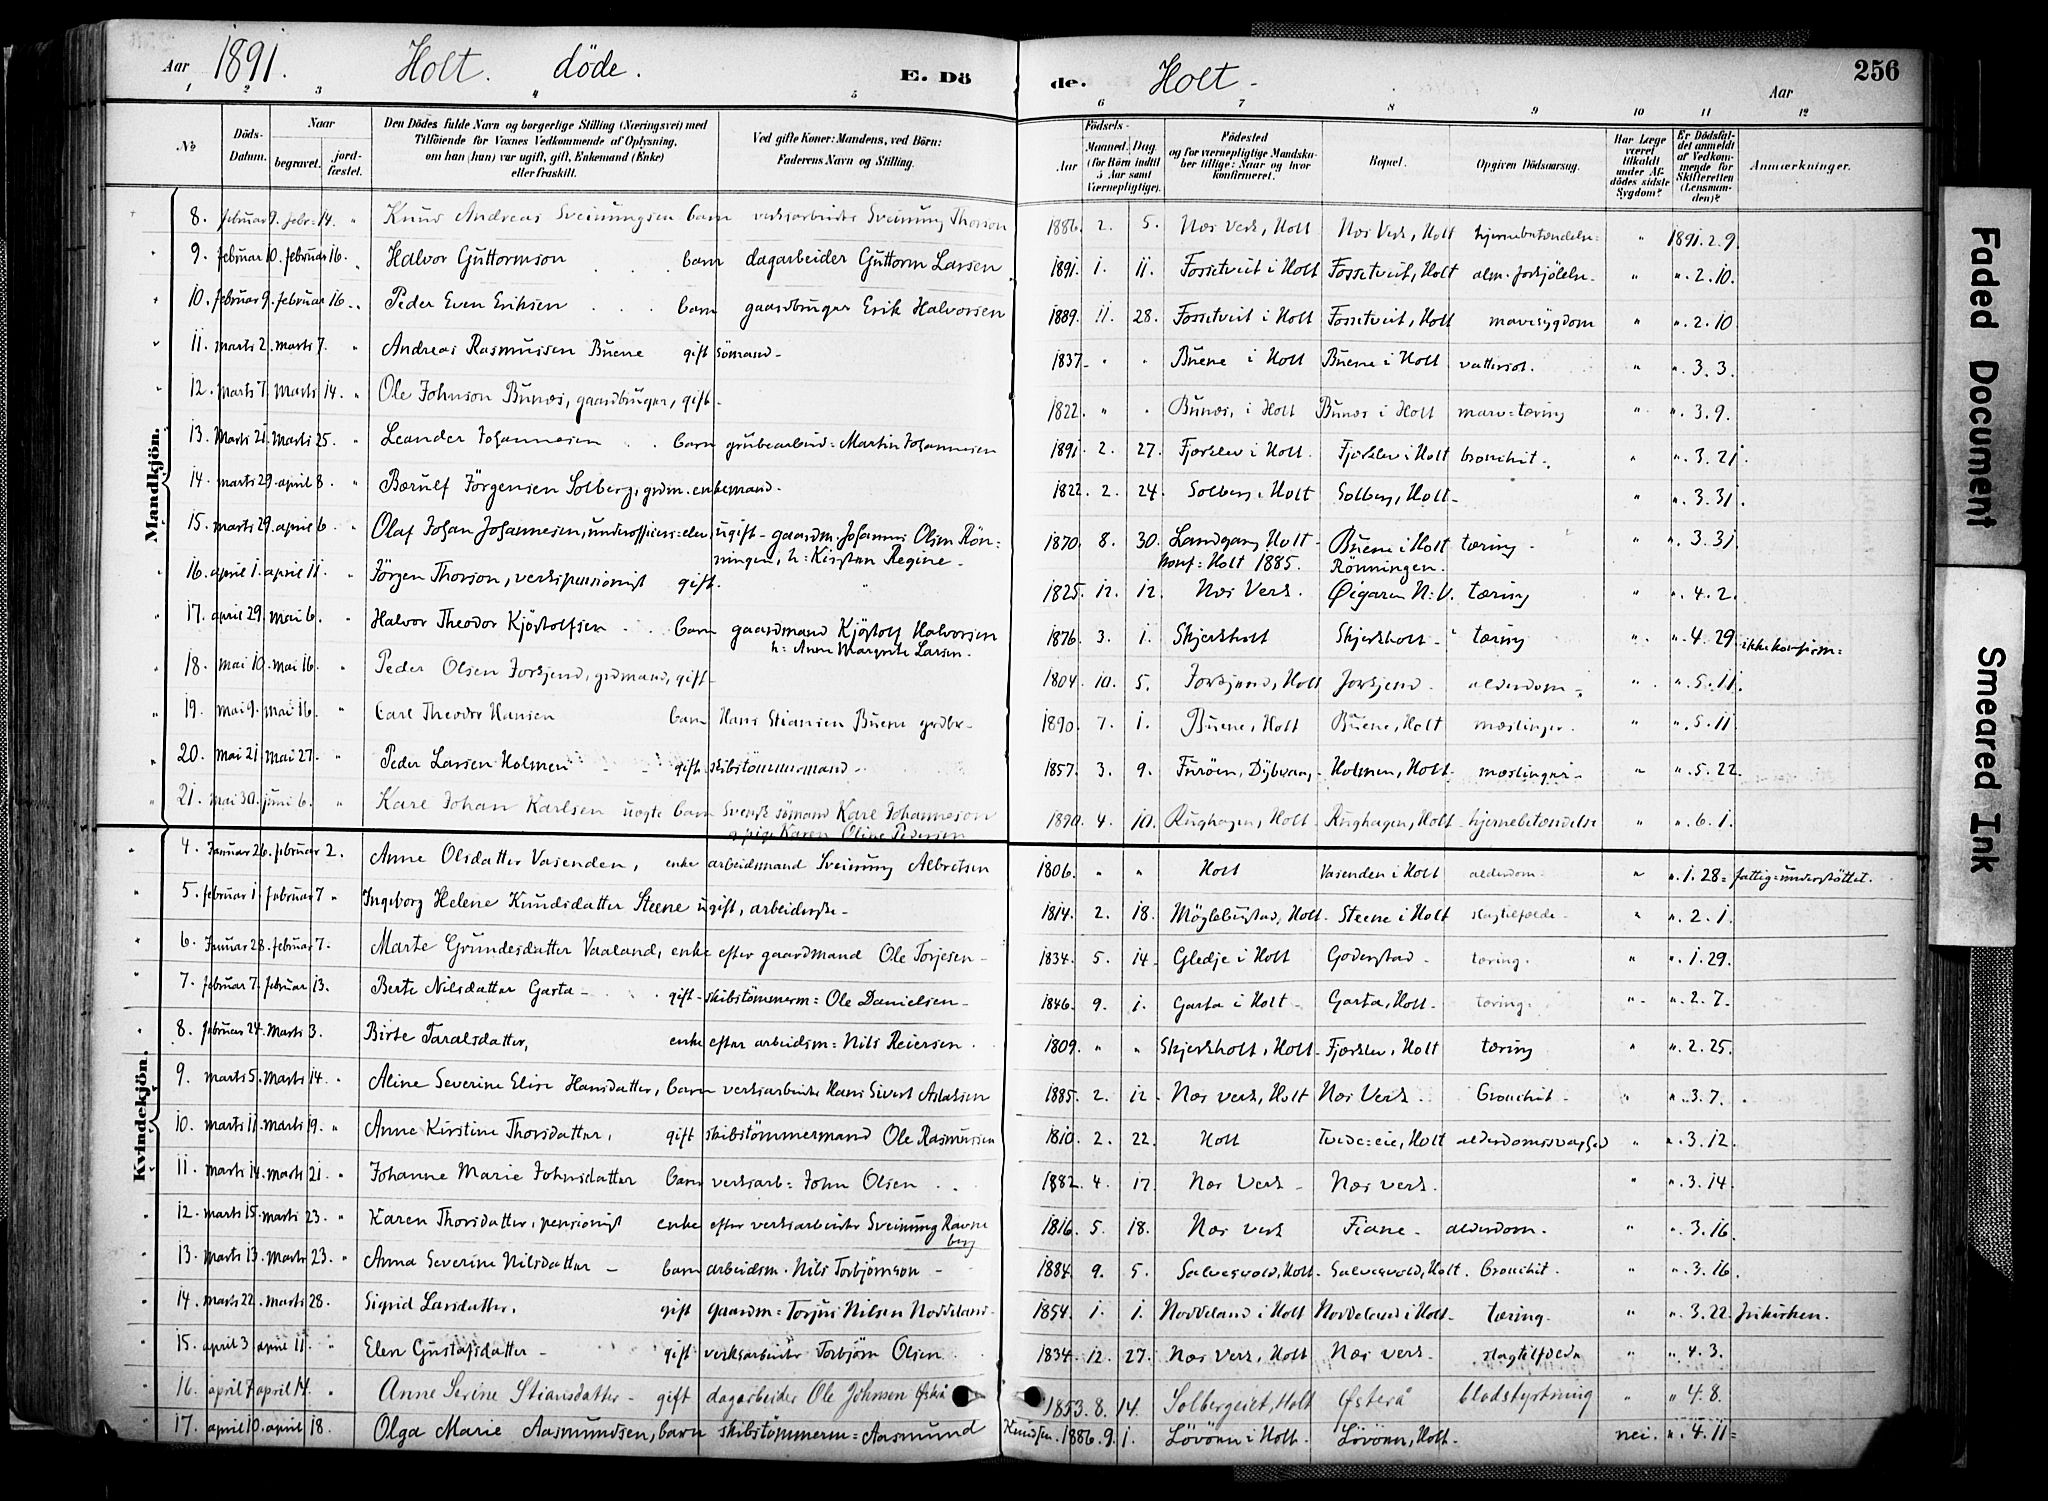 Aar 1891. Holt. döde. E. Dö de. Holt - 256
Aar
1 2 3 4 5 6 7 8 9 10 11 12
№ Döds-Datum. Naar begravet. jord-fæstet. Den Dödes fulde Navn og borgerlige Stilling (Næringsvei) med Tilföiende for Voxnes Vedkommende af Oplysning, om han (hun) var ugift, gift, Enkemand (Enke) eller fraskilt. Ved gifte Koner: Mandens, ved Börn: Faderens Navn og Stilling. Födsels- Aar Maaned. Dag. (for Börn indtil 5 Aar samt Værnepligtige). Födested og for værnepligtige Mandskaber tillige: Naar og hvor konfirmeret. Bopæl. Opgiven Dödsaarsag. Har Læge været tilkaldt under Afdödes sidste Sygdom? Er Dödsfaldet anmeldt af Vedkommende for Skifteretten (Lensmanden)? Anmærkninger.
Mandkjön.
8. februar 9. febr. 14. " Knud Andreas Sveinungsen barn verksarbeider Sveinung Thorson 1886. 2. 5. Næs Verk, Holt Næs Verk, Holt hjernebetændelse " 1891. 2. 9.
9. februar 10. februar 16. " Halvor Guttormson barn dagarbeider Guttorm Larsen 1891. 1. 11. Fossetveit i Holt Fossetveit, Holt alm. forkjölelse " ". 2. 10.
10. februar 9. februar 16. " Peder Even Eriksen barn gaardbruger Erik Halvorsen 1889. 11. 28. Fossetveit i Holt Fossetveit, Holt mavesygdom " ". 2. 10
11. marts 2. marts 7. " Andreas Rasmussen Buene gift sömand - 1837. " " Buene i Holt Buene i Holt vattersot. " ". 3. 3.
12. marts 7. Marts 14. " Ole Johnson Bunæs, gaardbruger, gift - 1822. " " Bunæs, i Holt Bunæs i Holt marv=tæring " ". 3. 9.
13. Marts 21. Marts 25. " Leander Johannesen barn grubearbeid= Martin Johannesen 1891. 2. 27. Fjæreslev i Holt. Fjæreslev i Holt bronchit. " ". 3. 21.
14. marts 29. april 8. " Bærulf Jörgensen Solberg, grdm. enkemand. 1822. 2. 24. Solberg, Holt Solberg, Holt - " ". 3. 31.
15. marts 29. april 6. " Olaf Johan Johannesen, underofficers=elev ugift - gaardm. Johannes Olsen Rön= 1870. 8. 30. Landgang Holt - Buene i Holt tæring - " ". 3. 31.
ningen, h= Kirsten Regine - konf= Holt 1885. Rönningen.
16. april 1. april 11. " Jörgen Thorson, verkspensionist gift. " 1825. 12. 12. Næs Verk. Øigaren N: V. tæring " ". 4. 2.
17. april 29. mai 6. " Halvor Theodor Kjöstolfsen barn gaardmand Kjöstolf Halvorsen 1876. 3. 1. Skjerkholt Skjerkholt - tæring " ". 4. 29.
h= Anne Margrete Larsen. ikke konfirm=
18. mai 10. mai 16. " Peder Olsen Torskjend, grdmand, gift - 1804. 10. 5. Torskjend, Holt Torskjend. alderdom. " ". 5. 11.
19. mai 9. mai 16. " Carl Theodor Hansen barn Hans Stiansen Buene grdbr - 1890. 7. 1. Buene, Holt Buene, Holt mæslinger. " ". 5. 11
20. mai 21. mai 27. " Peder Larsen Holmen gift skibstömmermand - 1857. 3. 9. Furöen, Dybvaag - Holmen, Holt. mæslinger - " ". 5. 22.
21. mai 30. juni 6. " Karl Johan Karlsen uægte barn Svensk sömand Karl Johanneson 1890. 4. 10. Rughagen, Holt Rughagen, Holt hjernebetændelse " ". 6. 1.
og pige Karen Oline Pedersen
Kvindekjön.
4. Januar 26. februar 2. Anne Olsdatter Vasenden, enke arbeidsmand Sveinung Albretsen 1806. " " Holt Vasenden i Holt alderdom. " ". 1. 28= fattig=understöttet.
5. februar 1. februar 7 " Ingeborg Helene Knudsdatter Steene ugift, arbeiderske - 1814. 2. 18. Möglebustad, Holt. Steene i Holt slagtilfælde " ". 2. 1.
6. Januar 28. februar 7. Marte Grundesdatter Vaaland, enke efter gaardmand Ole Torjesen - 1834. 5. 14. Gledje i Holt Goderstad - tæring. " ". 1. 29.
7. februar 7. februar 13. Berte Nilsdatter Garta - gift - skibstömmerm= Ole Danielsen - 1846. 9. 1. Garta i Holt - Garta, Holt - tæring. " ". 2. 7.
8. februar 24. Marts 3. Birte Taralsdatter, enke efter arbeidsm= Nils Reiersen. 1809. " " Skjerkholt, Holt. Fjæreslev, Holt tæring " ". 2. 25.
9. marts 5. Marts 14. " Aline Severine Elise Hansdatter, barn verksarbeider Hans Sivert Aslaksen 1885. 2. 12. Næs verk, Holt Næs Verk. bronchit - " ". 3. 7.
10. marts 11. Marts 19. " Anne Kirstine Thorsdatter, gift skibstömmermand Ole Rasmussen 1810. 2. 22. Holt Tvede=eie, Holt alderdomssvaghed " ". 3. 12.
11. marts 14. marts 21. " Johanne Marie Johnsdatter barn verksarb= John Olsen 1882. 4. 17. Næs Verk - Næs verk. " ". 3. 14.
12. marts 15. marts 23. " Karen Thorsdatter, pensionist enke efter verksarbeider Sveinung Ravne 1816. 5. 18. Næs verk Fiane - alderdom. " ". 3. 16.
berg
13. marts 13. marts 23. " Anna Severine Nilsdatter - barn arbeidsm. Nils Torbjörnson - 1884. 9. 5. Salvesvold, Holt. Salvesvold, Holt. bronchit. " ". 3. 16.
14. marts 22. marts 28. Sigrid Larsdatter, gift gaardm= Torjus Nilsen Noddeland. 1854. 1. 1. Noddeland i Holt Noddeland i Holt. tæring. " ". 3. 22. frikirken.
15. april 3 april 11 " Elen Gustafsdatter - gift verksarbeider Torbjörn Olsen 1834. 12. 27. Næs Verk, Holt Næs verk - slagtilfælde " ". 4. 3.
16. april 7. april 14. " Anne Serine Stiansdatter - gift dagarbeider Ole Johnsen Østrå 1853. 8. 14. Solbergeiet, Holt Østerå blodstyrtning " " 4. 8.
17. april 10. april 18. Olga Marie Aasmundsen, barn skibstömmerm= Aasmund Knudsen. 1886. 9. 1. Lövönn i Holt - Lövönn, Holt - nei. ". 4. 11=
Faded Document
Smeared Ink